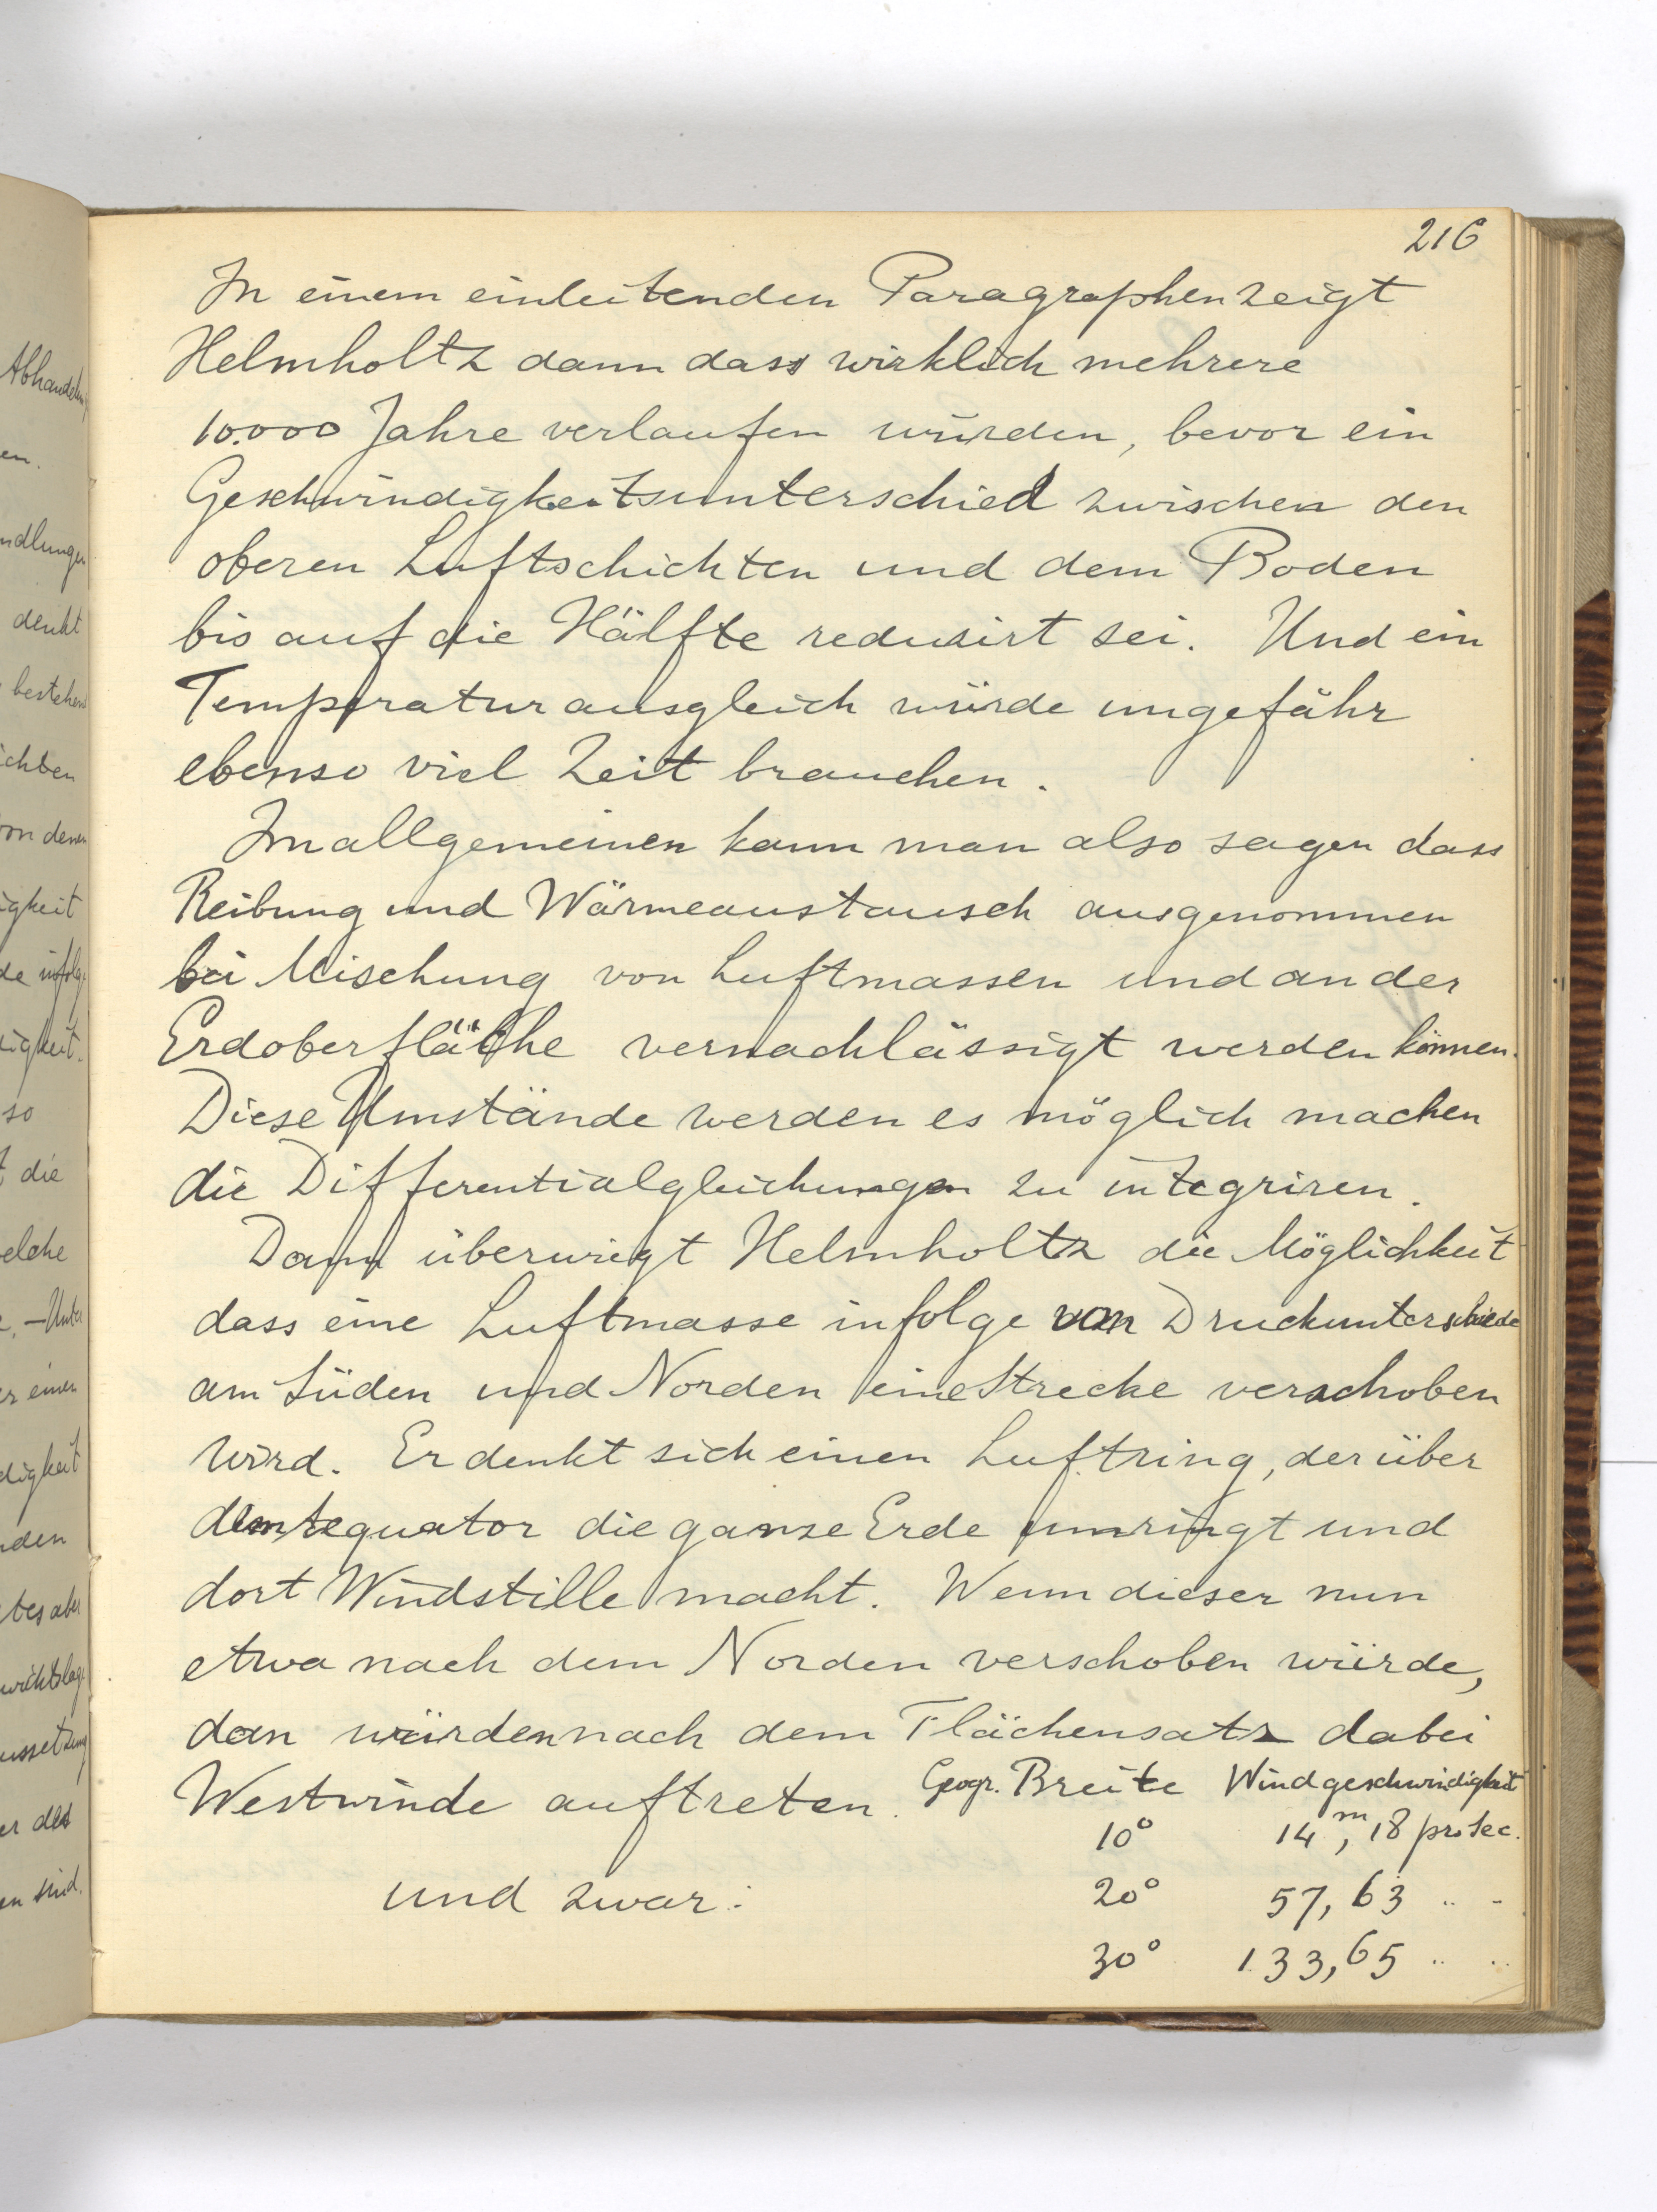 216
In einem einleitenden Paragraphen zeigt
Helmholtz dann dass wirklich mehrere
10.000 Jahre verlaufen würden, bevor ein
Geschwindigkeitsunterschied zwischen den
oberen Luftschichten und dem Boden
bis auf die Hälfte reduzirt sei. Und ein
Temperaturausgleich würde ungefähr
ebenso viel Zeit brauchen.
Im allgemeinen kann man also sagen dass
Reibung und Wärmeaustausch ausgenommen
bei Mischung von Luftmassen und an der
Erdoberfläche vernachlässigt werden können.
Diese Umstände werden es möglich machen
die Differentialgleichungen zu integriren.
Dann überwiegt Helmholtz die Möglichkeit
dass eine Luftmasse infolge von Druckunterschiede
am Süden und Norden eine Strecke verschoben
wird. Er denkt sich einen Luftring, der über
dem Aequator die ganze Erde umringt und
dort Windstille macht. Wenn dieser nun
etwa nach dem Norden verschoben würde,
dan würden nach dem Flächensatz dabei
Westwinde auftreten. Geogr. Breite Windgeschwindigkeit
10° 14,m18 pro Sec.
und zwar: 20° 57,63 " "
30° 133,65 " "
Abhandlung
en.
ndlungen
denkt
bestehend
ichten
von denen
igkeit
de infolge
digkeit.
so
die
elche
. — Unter
er einen
digkeit
den
tes aber
wichtslage
ussetzung
er des
en sind.